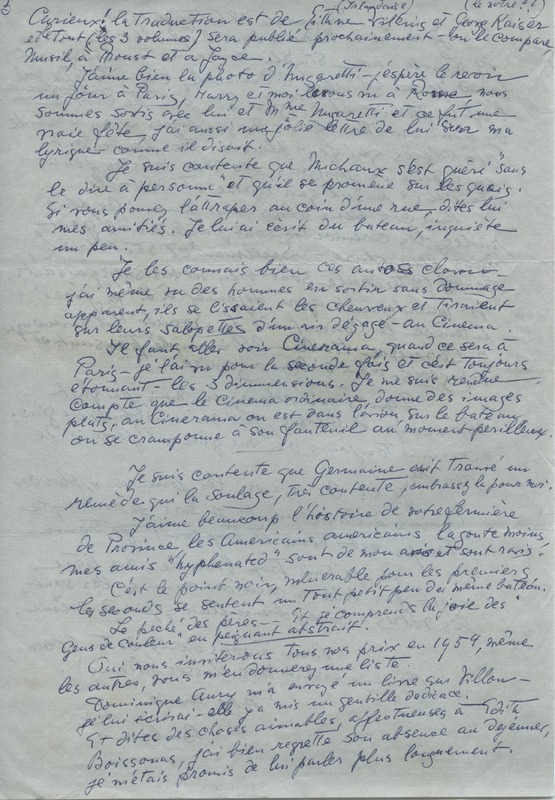 5
(Irlandaise) (le nôtre ? !)
Curieux ! la traduction est de Eithne Wilkins et Georg Kaiser
et tout (les 3 volumes) sera publié prochainement – on le compare
Musil, à Proust et à Joyce.
J'aime bien la photo d'Ungaretti – j'espère le revoir
un jour à Paris, Harry et moi vu à Rome, nous
sommes sortis avec lui et Mme Ungaretti et ce fut une
vraie fête, j'ai aussi une jolie lettre de lui sur ma
lyrique comme il disait.
Je suis contente que Michaux s'est guéri "sans
le dire à personne" et qu'il se promène sur les quais.
Si vous pouvez l'attraper au coin d'une rue, dites lui
mes amitiés. Je lui ai écrit du bateau, inquiète
un peu.
Je les connais bien ces autos
j'ai même vu des hommes en sortir sans dommage
apparent, ils se lissaient les cheveux et tiraient
sur leurs salopettes d'un air dégagé – au Cinema.
Il faut aller voir Cinerama quand ce sera à
Paris – je l'ai vu pour la seconde fois et c'est toujours
étonnant – les 3 dimensions. Je me suis rendue
compte que le Cinema ordinaire, donne des images
plats, au Cinerama on est dans l'avion sur le bateau,
on se cramponne à son fauteuil au moment perilleux.
Je suis contente que Germaine ait trouvé un
remède qui la soulage, très contente, embrassez la pour moi.
J'aime beaucoup l'histoire de votre fermière
de Province, les Americains americains la goute moins,
mes amis "hyphenated" sont de mon avis et sont ravis.
C'est le point noir, vulnerable pour les premiers
les seconds se sentent un tout petit peu du même bateau.
Le peché des pères – Et je comprends la joie des
"Gens de Couleur" en peignant abstrait !
Oui nous inviterons tous nos prix en 1959, même
les autres, vous m'en donnerez une liste.
Dominique Aury m'a envoyé un livre
je lui écrirai – elle y a mis un gentille dedicace.
Et dites des choses aimables, affectueuses à Edith
Boissonas, j'ai bien regretté son absence au dejeuner,
je m'étais promis de lui parler plus longuement.